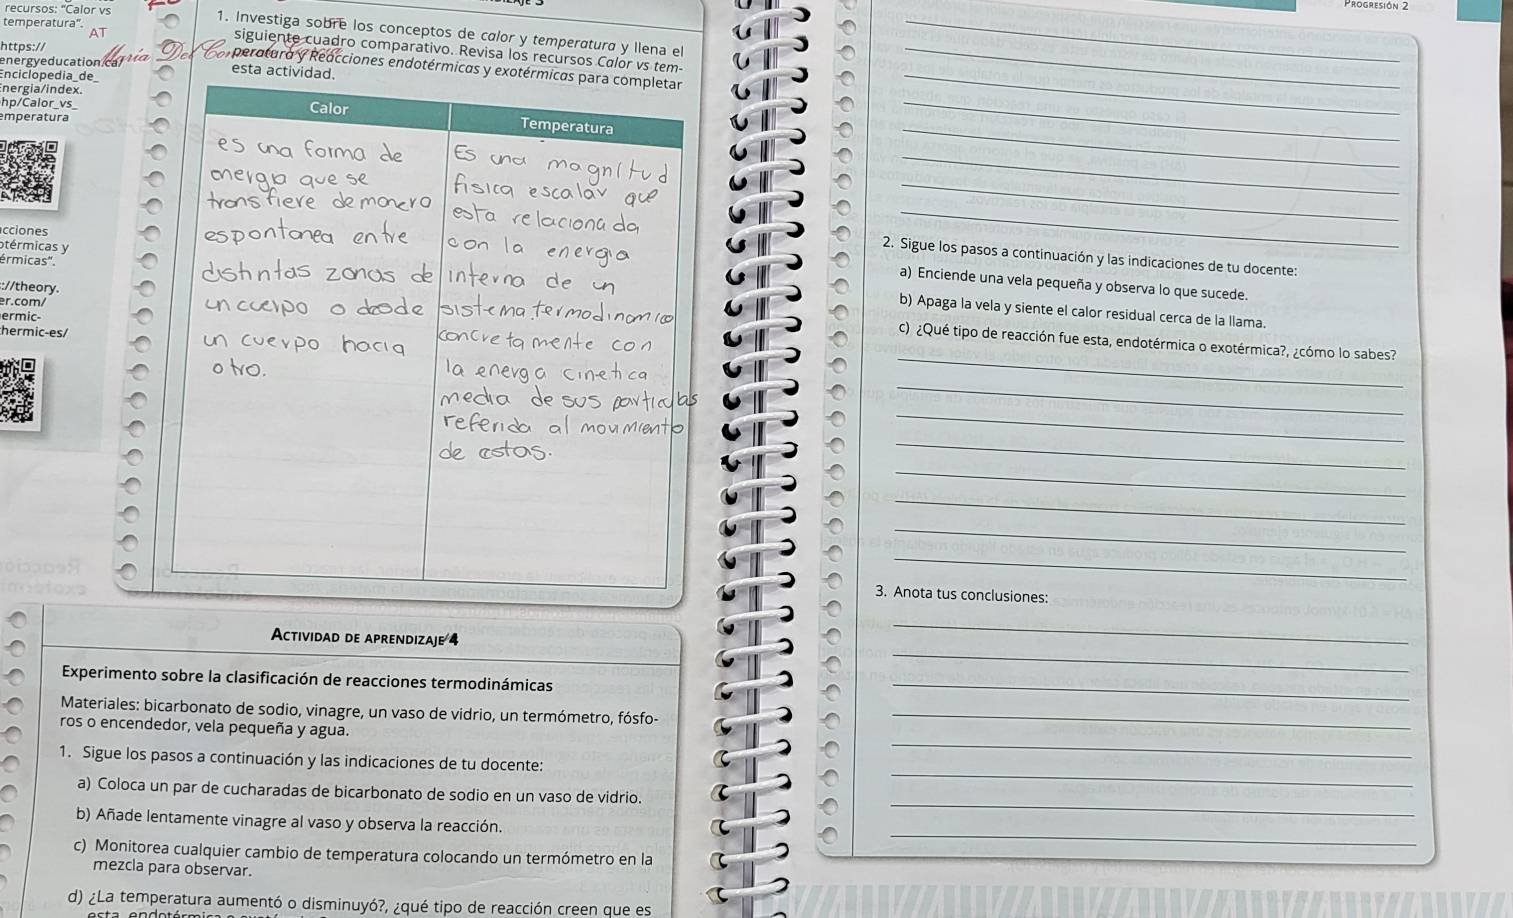 recursos: "Calor vs
temperatura".
AT
https://
energyeducation.ca/
Enciclopedia_de_
Energia/index.
php/Calor_vs_
emperatura
cciones
otérmicas y
érmicas".
://theory.
er.com/
ermic-
hermic-es/
María Del
1. Investiga sobre los conceptos de calor y temperatura y llena el
siguiente cuadro comparativo. Revisa los recursos Calor vs tem-
peratura y Reacciones endotérmicas y exotérmicas para completar
esta actividad.
Calor
es una forma de
energia que se
transfiere de manera
espontanea entre
distintas zonas de
un cuerpo o desde
un cuerpo hacia
otro.
Temperatura
Es una magnitud
fisica escalar que
esta relacionada
con la energia
interna de un
sistema termodinamico
concretamente con
la energa cinetica
media de sus particulas
referida al movimiento
de estas.
ACTIVIDAD DE APRENDIZAJE 4
Experimento sobre la clasificación de reacciones termodinámicas
Materiales: bicarbonato de sodio, vinagre, un vaso de vidrio, un termómetro, fósfo-
ros o encendedor, vela pequeña y agua.
1. Sigue los pasos a continuación y las indicaciones de tu docente:
a) Coloca un par de cucharadas de bicarbonato de sodio en un vaso de vidrio.
b) Añade lentamente vinagre al vaso y observa la reacción.
c) Monitorea cualquier cambio de temperatura colocando un termómetro en la
mezcla para observar.
d) ¿La temperatura aumentó o disminuyó?, ¿qué tipo de reacción creen que es
PROGRESIÓN 2
2. Sigue los pasos a continuación y las indicaciones de tu docente:
a) Enciende una vela pequeña y observa lo que sucede.
b) Apaga la vela y siente el calor residual cerca de la llama.
c) ¿Qué tipo de reacción fue esta, endotérmica o exotérmica?, ¿cómo lo sabes?
3. Anota tus conclusiones: